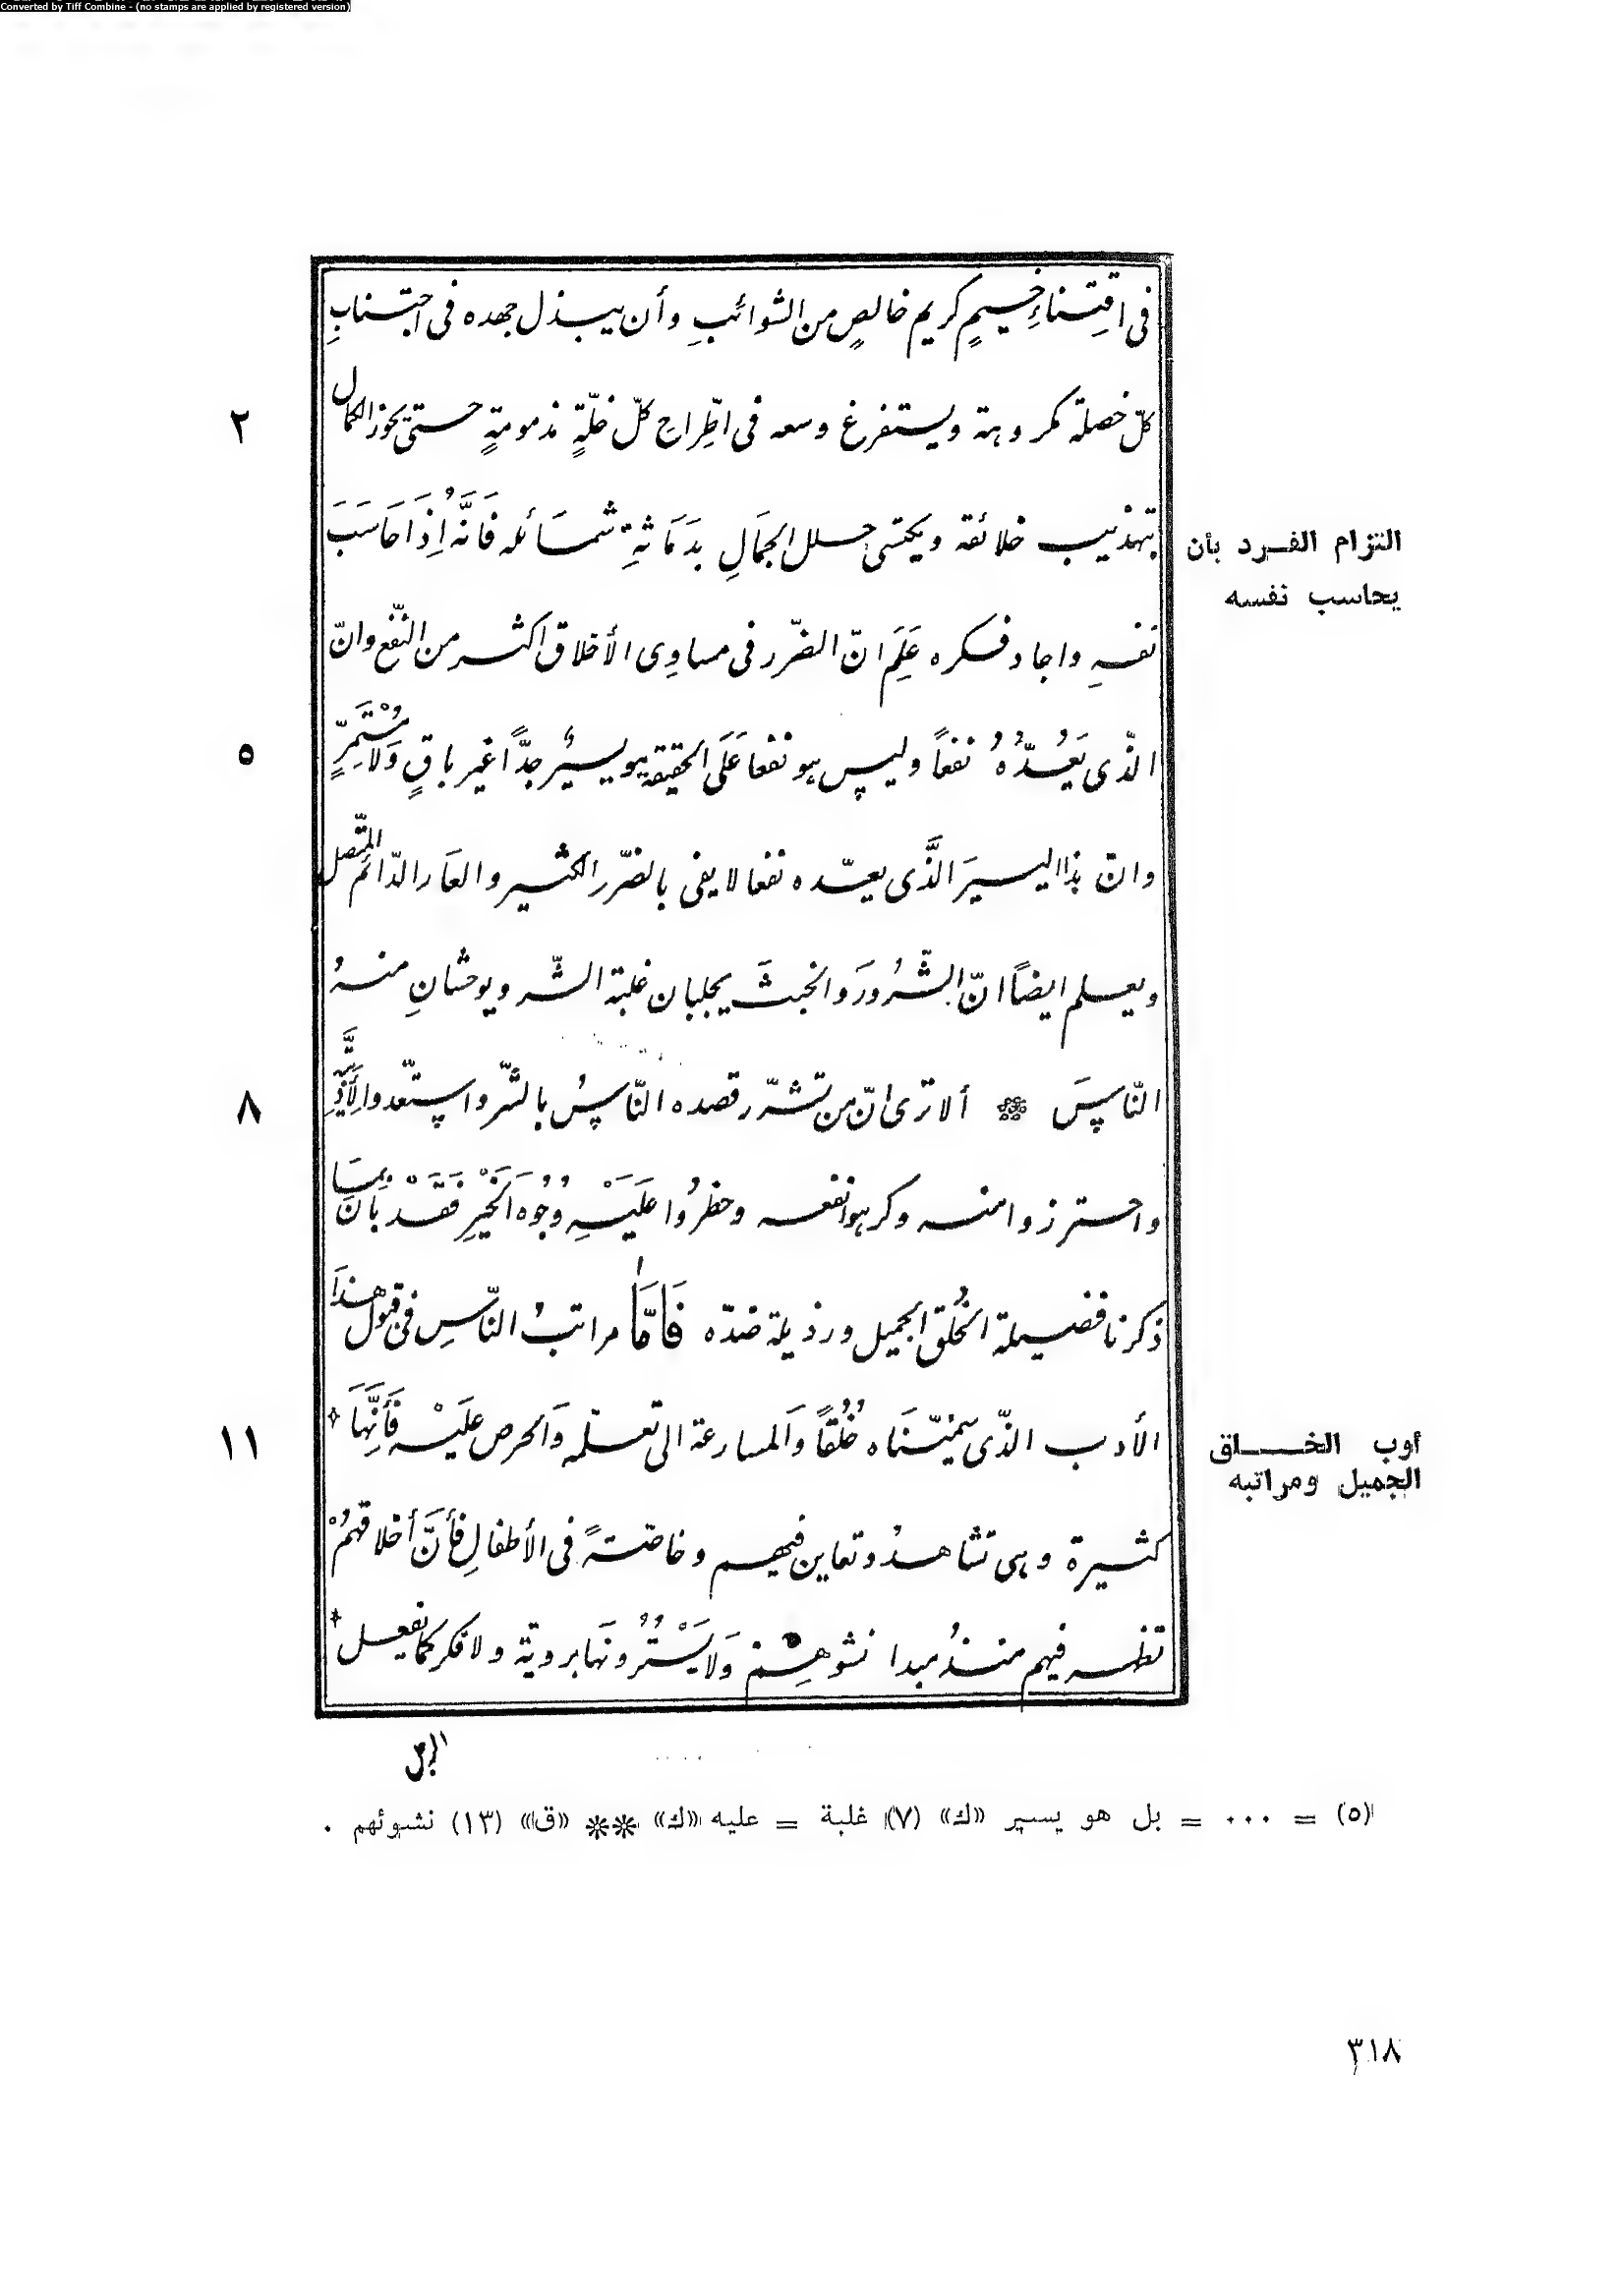 Converted by Tiff Combine - (no stamps are applied by registered version)
فى اقتِناءِ خِيمٍ كريم خالصٍ من الشوائبِ وأن يبذل جهده فى اجتنابِ
كلّ خصلة مكروهة ويستفرغ وسعه فى اطِّراحِ كلّ خلّةٍ مذمومةٍ حتى يحوز الكمال
٢
بتهذيب خلائقه ويكتسى حلل الجمَالِ بدَمَاثةِ شمَائله فَانَّهُ اِذَا حَاسَبَ
التزام الفرد بأن
يحاسب نفسه
نفسهِ واجاد فكره عَلِمَ انّ الضّرر فى مساوِى الأخلاق اكثر من النّفع وانّ
الّذى يَعُدُّهُ نفعاً وليس هو نفعا عَلَى الحقيقه هو يسيرٌ جدًّا غير باقٍ وَلَا مُسْتَمِرٍّ
٥
وانّ هذا اليسيرَ الَّذى يعدّه نفعا لا يفى بالضّرر الكثير والعَار الدّائم المتّصل
ويعلم ايضًا انّ الشّرُورَ والخبثَ يجلبان غلبة الشّر ويوحشانِ منهُ
النّاسَ ۞ ألا ترى انّ من تشرّر قصده النّاسُ بالشّر واستعدوا لِأَذيَّته
٨
واحترزوا منه وكرهوا نفعه وحظرُوا عَلَيْهِ وُجُوهَ الخَيْرِ فَقَدْ بَانَ بمَا
ذكرنا فضيلة الخُلق الجميل ورذيلة ضدّه فَامَّا مراتبُ النّاسِ فى قبول هذَا
الأدب الّذى سميّنَاه خُلُقاً وَالمسارعة الى تعلّمه وَالحرص عَلَيْه فَأَنَّهَا
١١
أوب الخلق
الجميل ومراتبه
كثيرة وهى تشاهدُ وتعاين فيهم وخاصّةً فى الأطفالِ فأَنَّ أخلاقهُمْ
تظهر فيهم منذُ مبدا نشوهِمْ وَلَا يَسْتُرُونهَا برويّة ولا فكر كما يفعل
الرجل
(٥) = ... = بل هو يسير «ك» (٧) غلبة = عليه «ك» ** «ق» (١٣) نشوئهم .
٣١٨